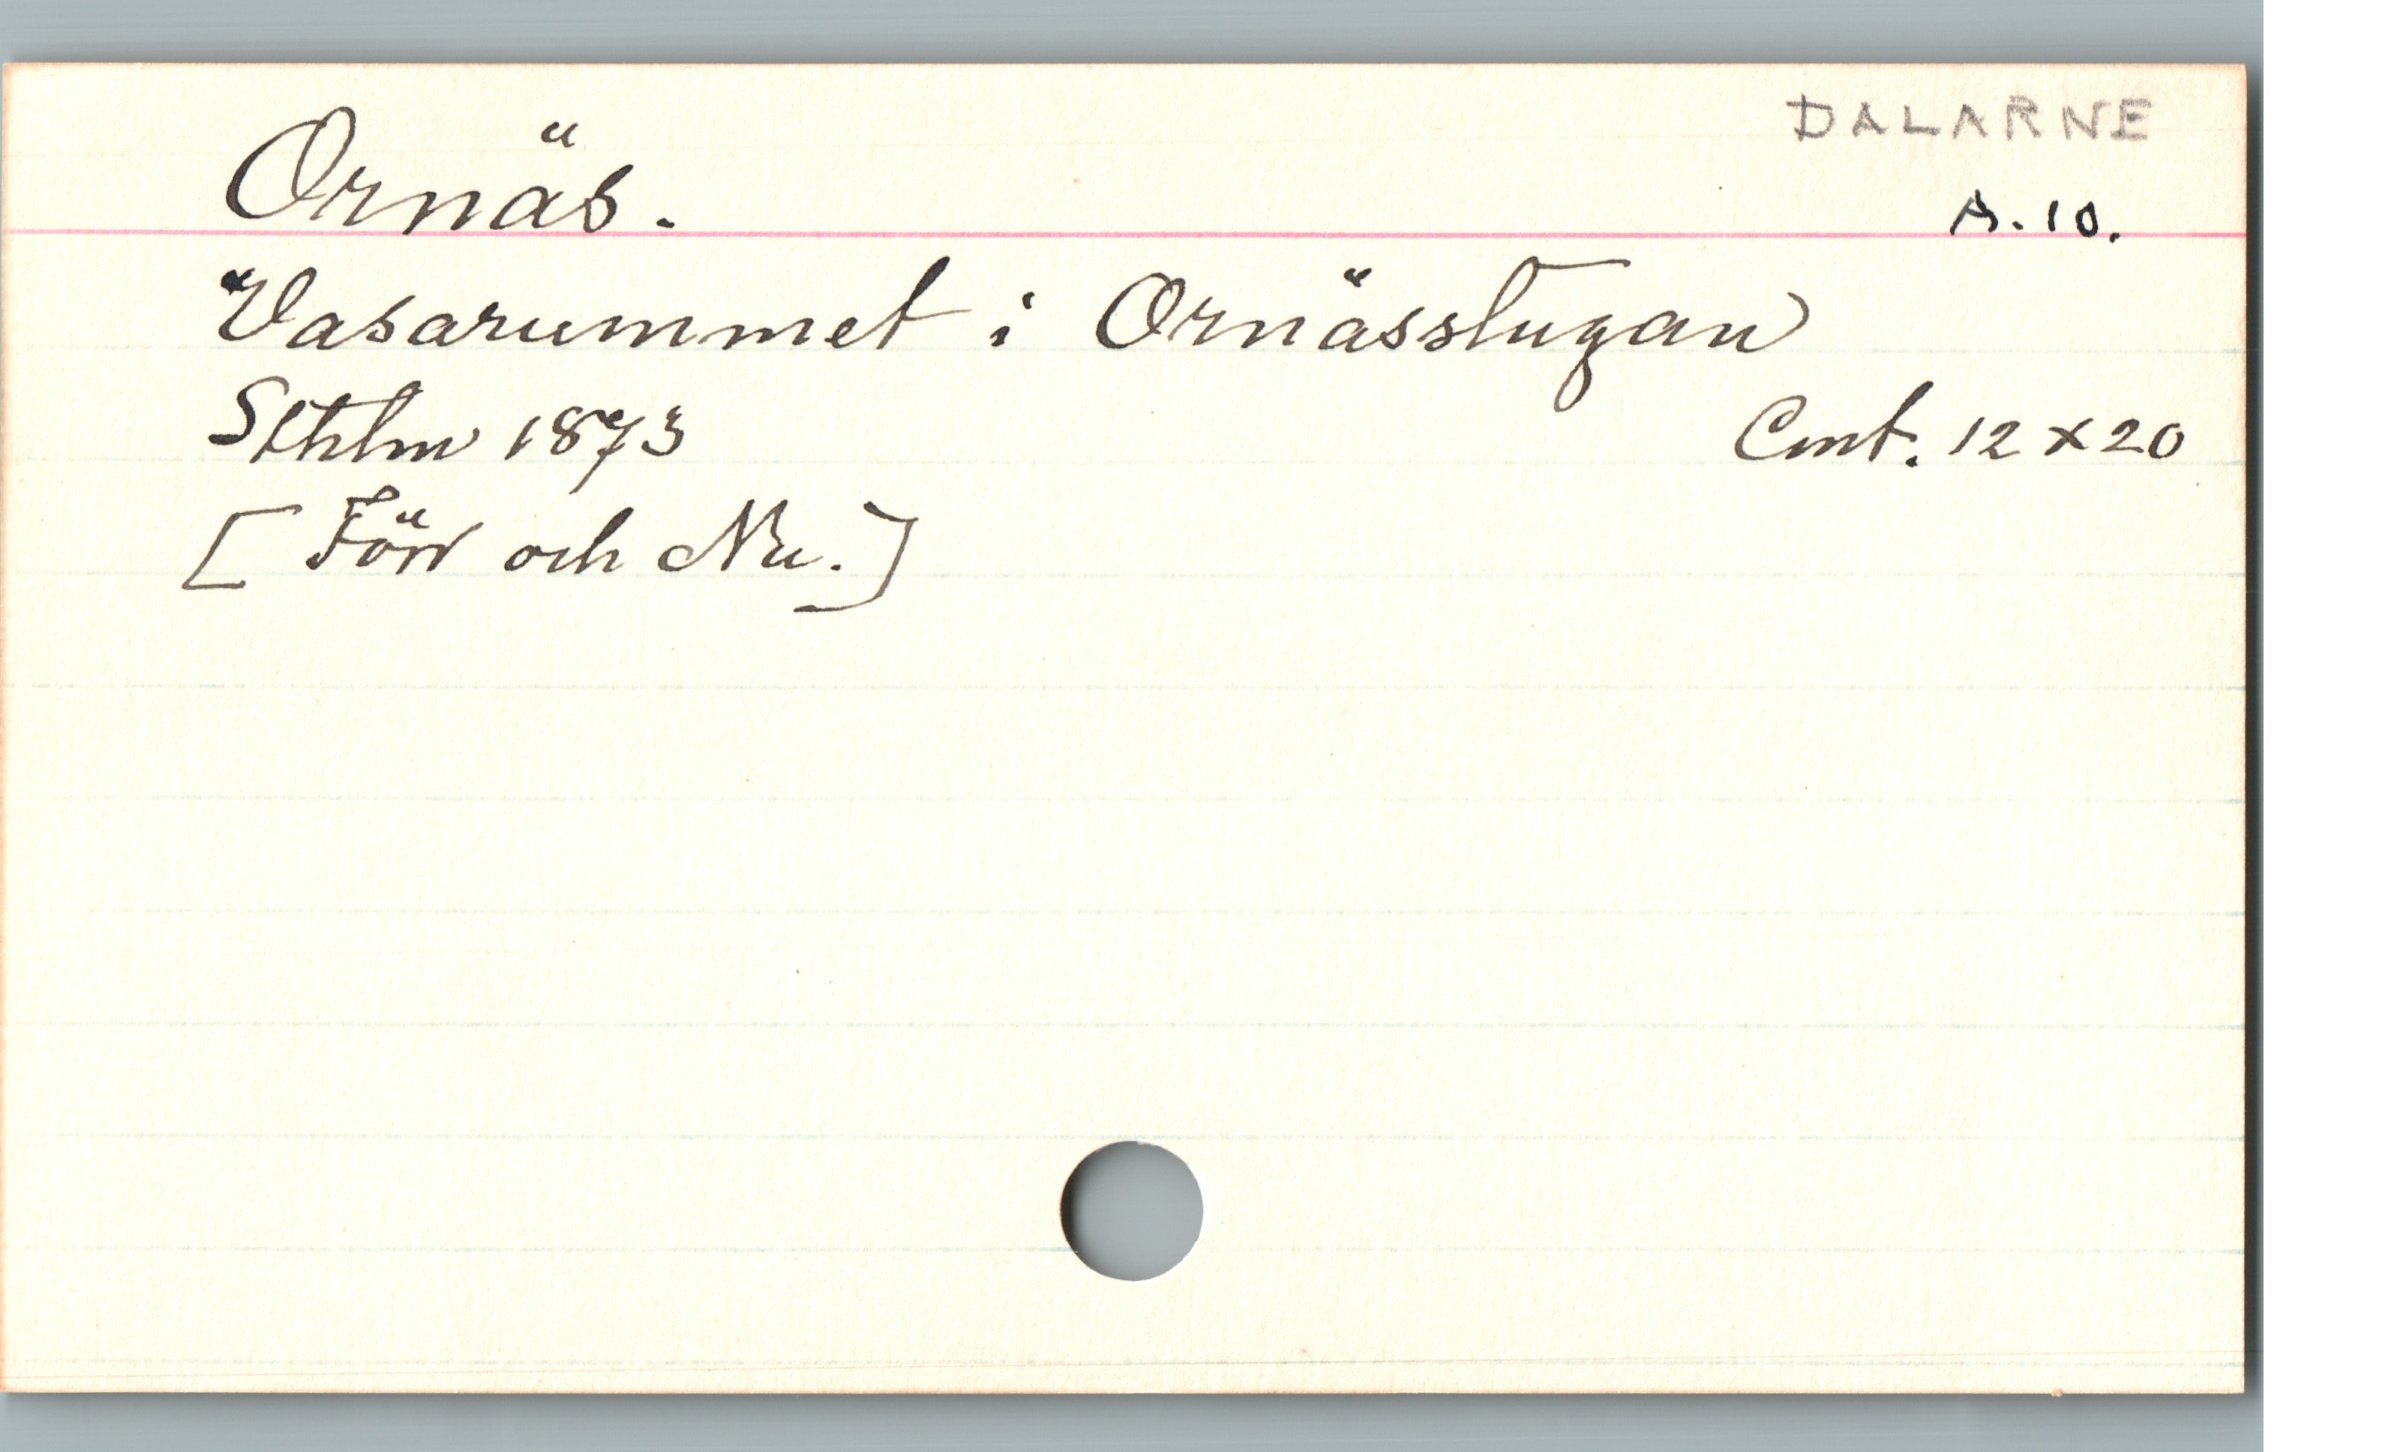 DALARNE
Ornäs.
A. 10.
Vasarummet i Ornässtugan
Sthlm 1873
Cmt. 12 x 20
[ Förr och Nu. ]